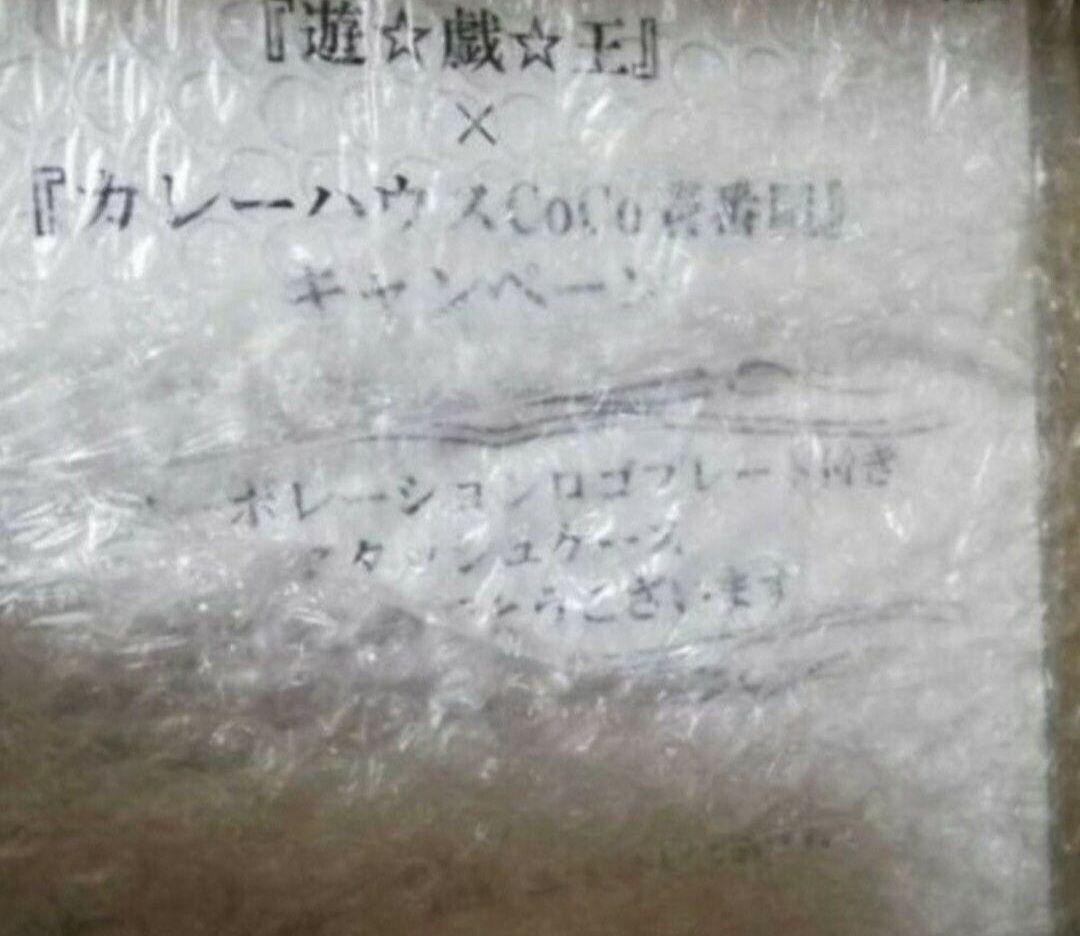 『遊☆戯☆王』
×
『カレーハウスCoCo壱番屋』
キャンペーン
ボレーションロゴプレート付き
アタッシュケース
ございます